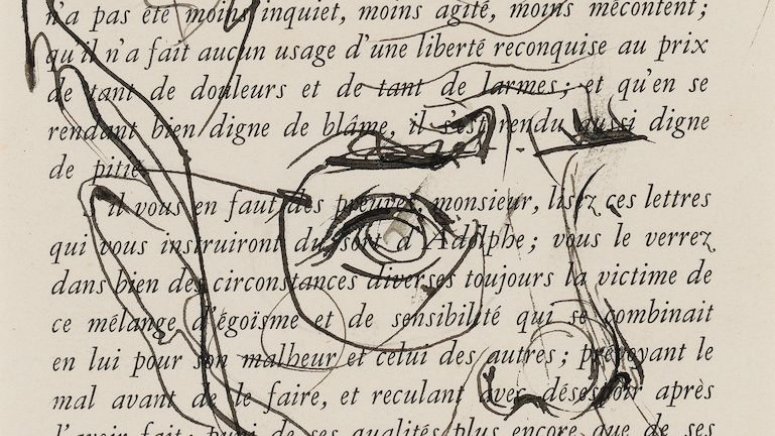 n'a pas été moins inquiet, moins agité, moins mécontent ;
qu'il n'a fait aucun usage d'une liberté reconquise au prix
de tant de douleurs et de tant de larmes ; et qu'en se
rendant bien digne de blâme, il s'est rendu aussi digne
de pitié.
S'il vous en faut des preuves, monsieur, lisez ces lettres
qui vous instruiront du sort d'Adolphe ; vous le verrez
dans bien des circonstances diverses toujours la victime de
ce mélange d'égoïsme et de sensibilité qui se combinait
en lui pour son malheur et celui des autres ; prévoyant le
mal avant de le faire, et reculant avec désespoir après
l'avoir fait ; puni de ses qualités plus encore que de ses